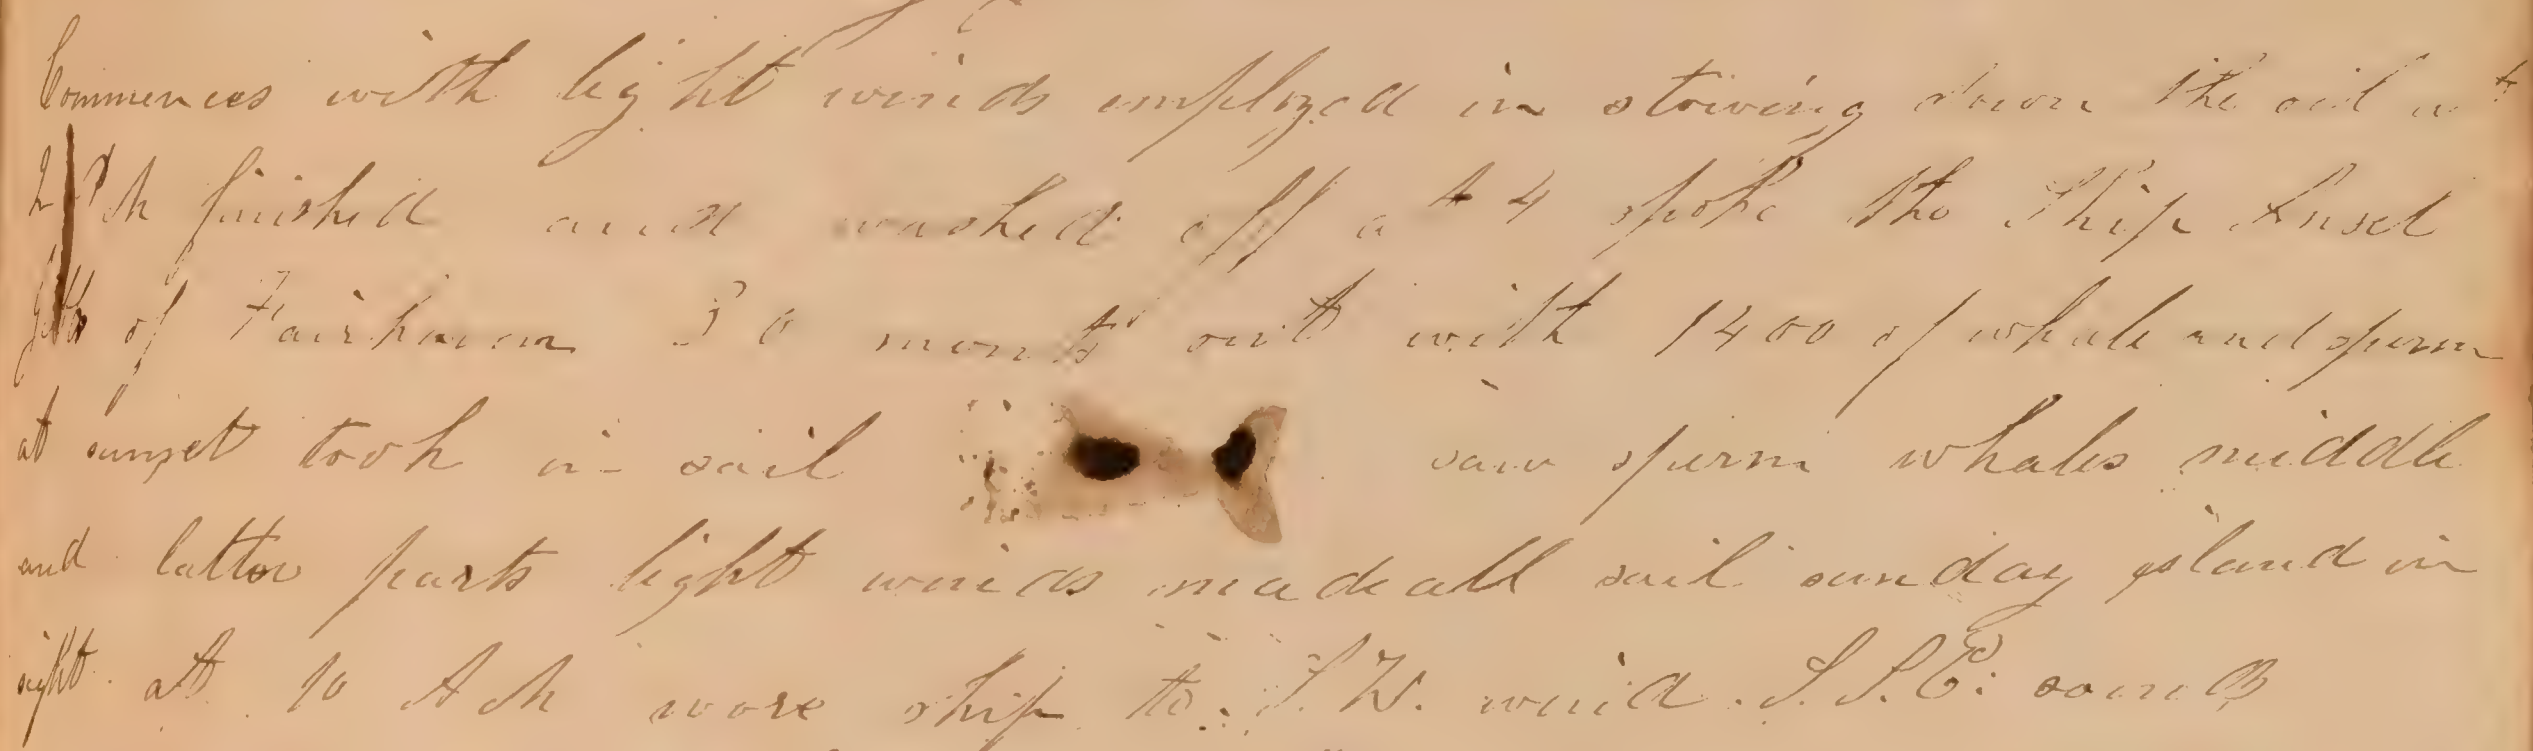 Commences with light winds employed in stowing down the oil at
2 P M finished and washed off at 4 spoke the Ship Ansel
Gibbs of Fairhaven 30 months out with 1400 of whale and sperm
at sunset took in sail saw sperm whales middle
and latter parts light winds made all sail sunday island in
sight at 10 A M wore ship to S. W. wind S. S. E.